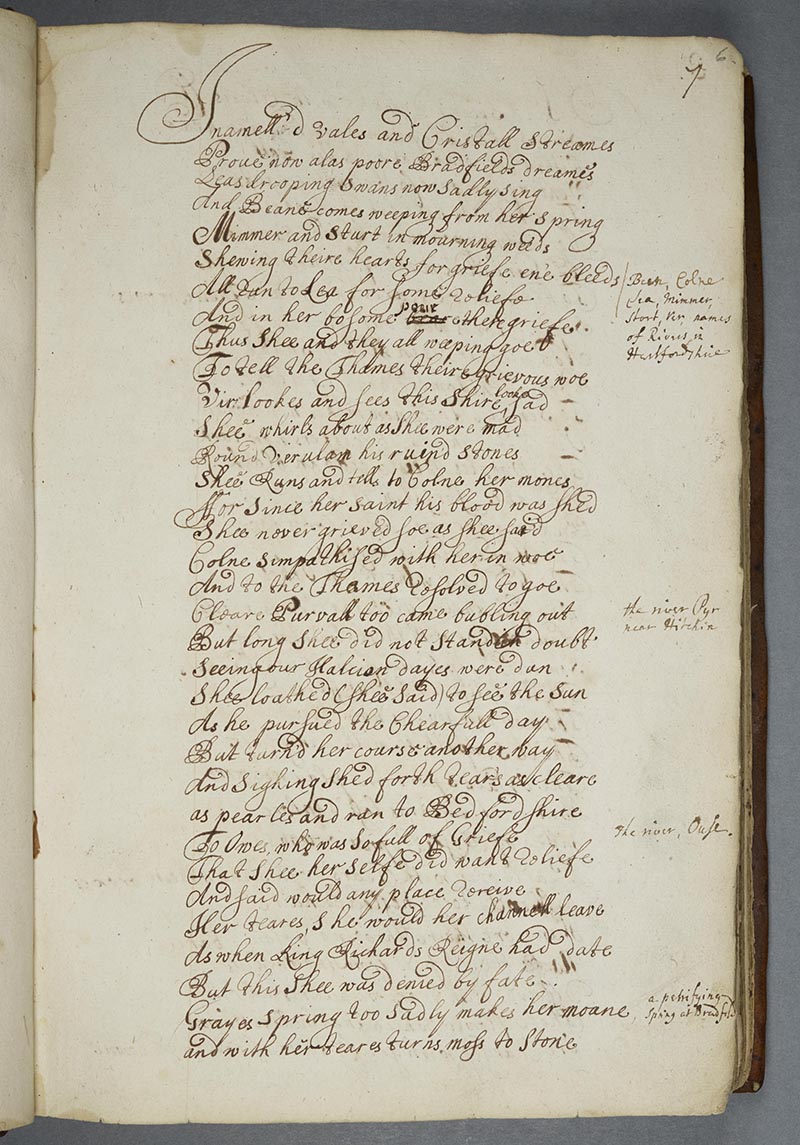 6
7
Inamell'd vales and Cristall Streames
Prove now alas poore Bradfields dreames
Leas drooping Swans now sadly sing
And Beane comes weeping from her Spring
Mimmer and Sturt in mourning weeds
Shewing theire hearts for griefe ene bleeds
All Run to Lea for some Reliefe
And in her bosome pour there griefe
Thus Shee and they all weeping goe
To tell the Thames theire grievous woe
Vir lookes and sees this Shire looke sad
Shee whirls about as Shee were mad
Round Verulam his ruind Stones
Shee Runs and tells to Colne her mones
For since her Saint his blood was shed
Shee never grieved soe as shee said
Colne Simpathised with her in woe
And to the Thames Resolved to goe
Cleare Purvall too came bubling out
But long Shee did not Stand in doubt
Seeing our Halcion dayes were dun
Shee loathed (shee said) to see the Sun
As he pursued the Chearfull day
But turn'd her course another way
And sighing shed forth tears as cleare
as pearles and ran to Bedfordshire
To Owes, who was so full of Griefe
That Shee her selfe did want Reliefe
And said would any place Receive
Her teares, She would her channell leave
As when King Richards Reigne had date
But this Shee was denied by fate
Grayes Spring too sadly makes her moane
and with her teares turns moss to Stone
Bean, Colne
Lea, Mimmer,
Stort, Ver names
of Rivers in
Hertfordshire
the river Pyr
near Hitchin
the river, Ouse.
a petrifying
Spring at Bradfeld